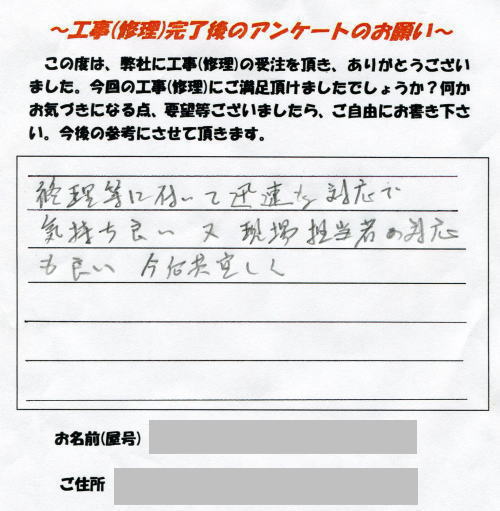 ～工事(修理)完了後のアンケートのお願い～
この度は、弊社に工事(修理)の受注を頂き、ありがとうござい
ました。今回の工事(修理)にご満足頂けましたでしょうか？何か
お気づきになる点、要望等ございましたら、ご自由にお書き下さ
い。今後の参考にさせて頂きます。
修理等に付いて迅速な対応で
気持ち良い 又 現場担当者の対応
も良い 今后共宜しく
お名前(屋号)
ご住所